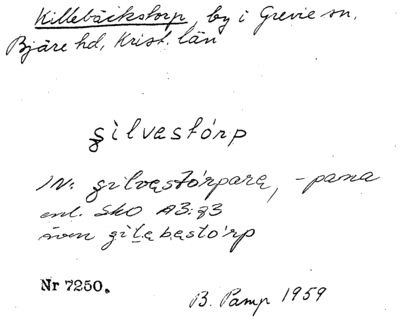 Killebäckstorp, by i Grevie sn,
Bjäre hd, Krist. län
gìlvastó́rp
IN: gilvęstórparę, -parna
enl. Sko A3:93
även gilębęstórp
Nr 7250.
B. Pamp 1959